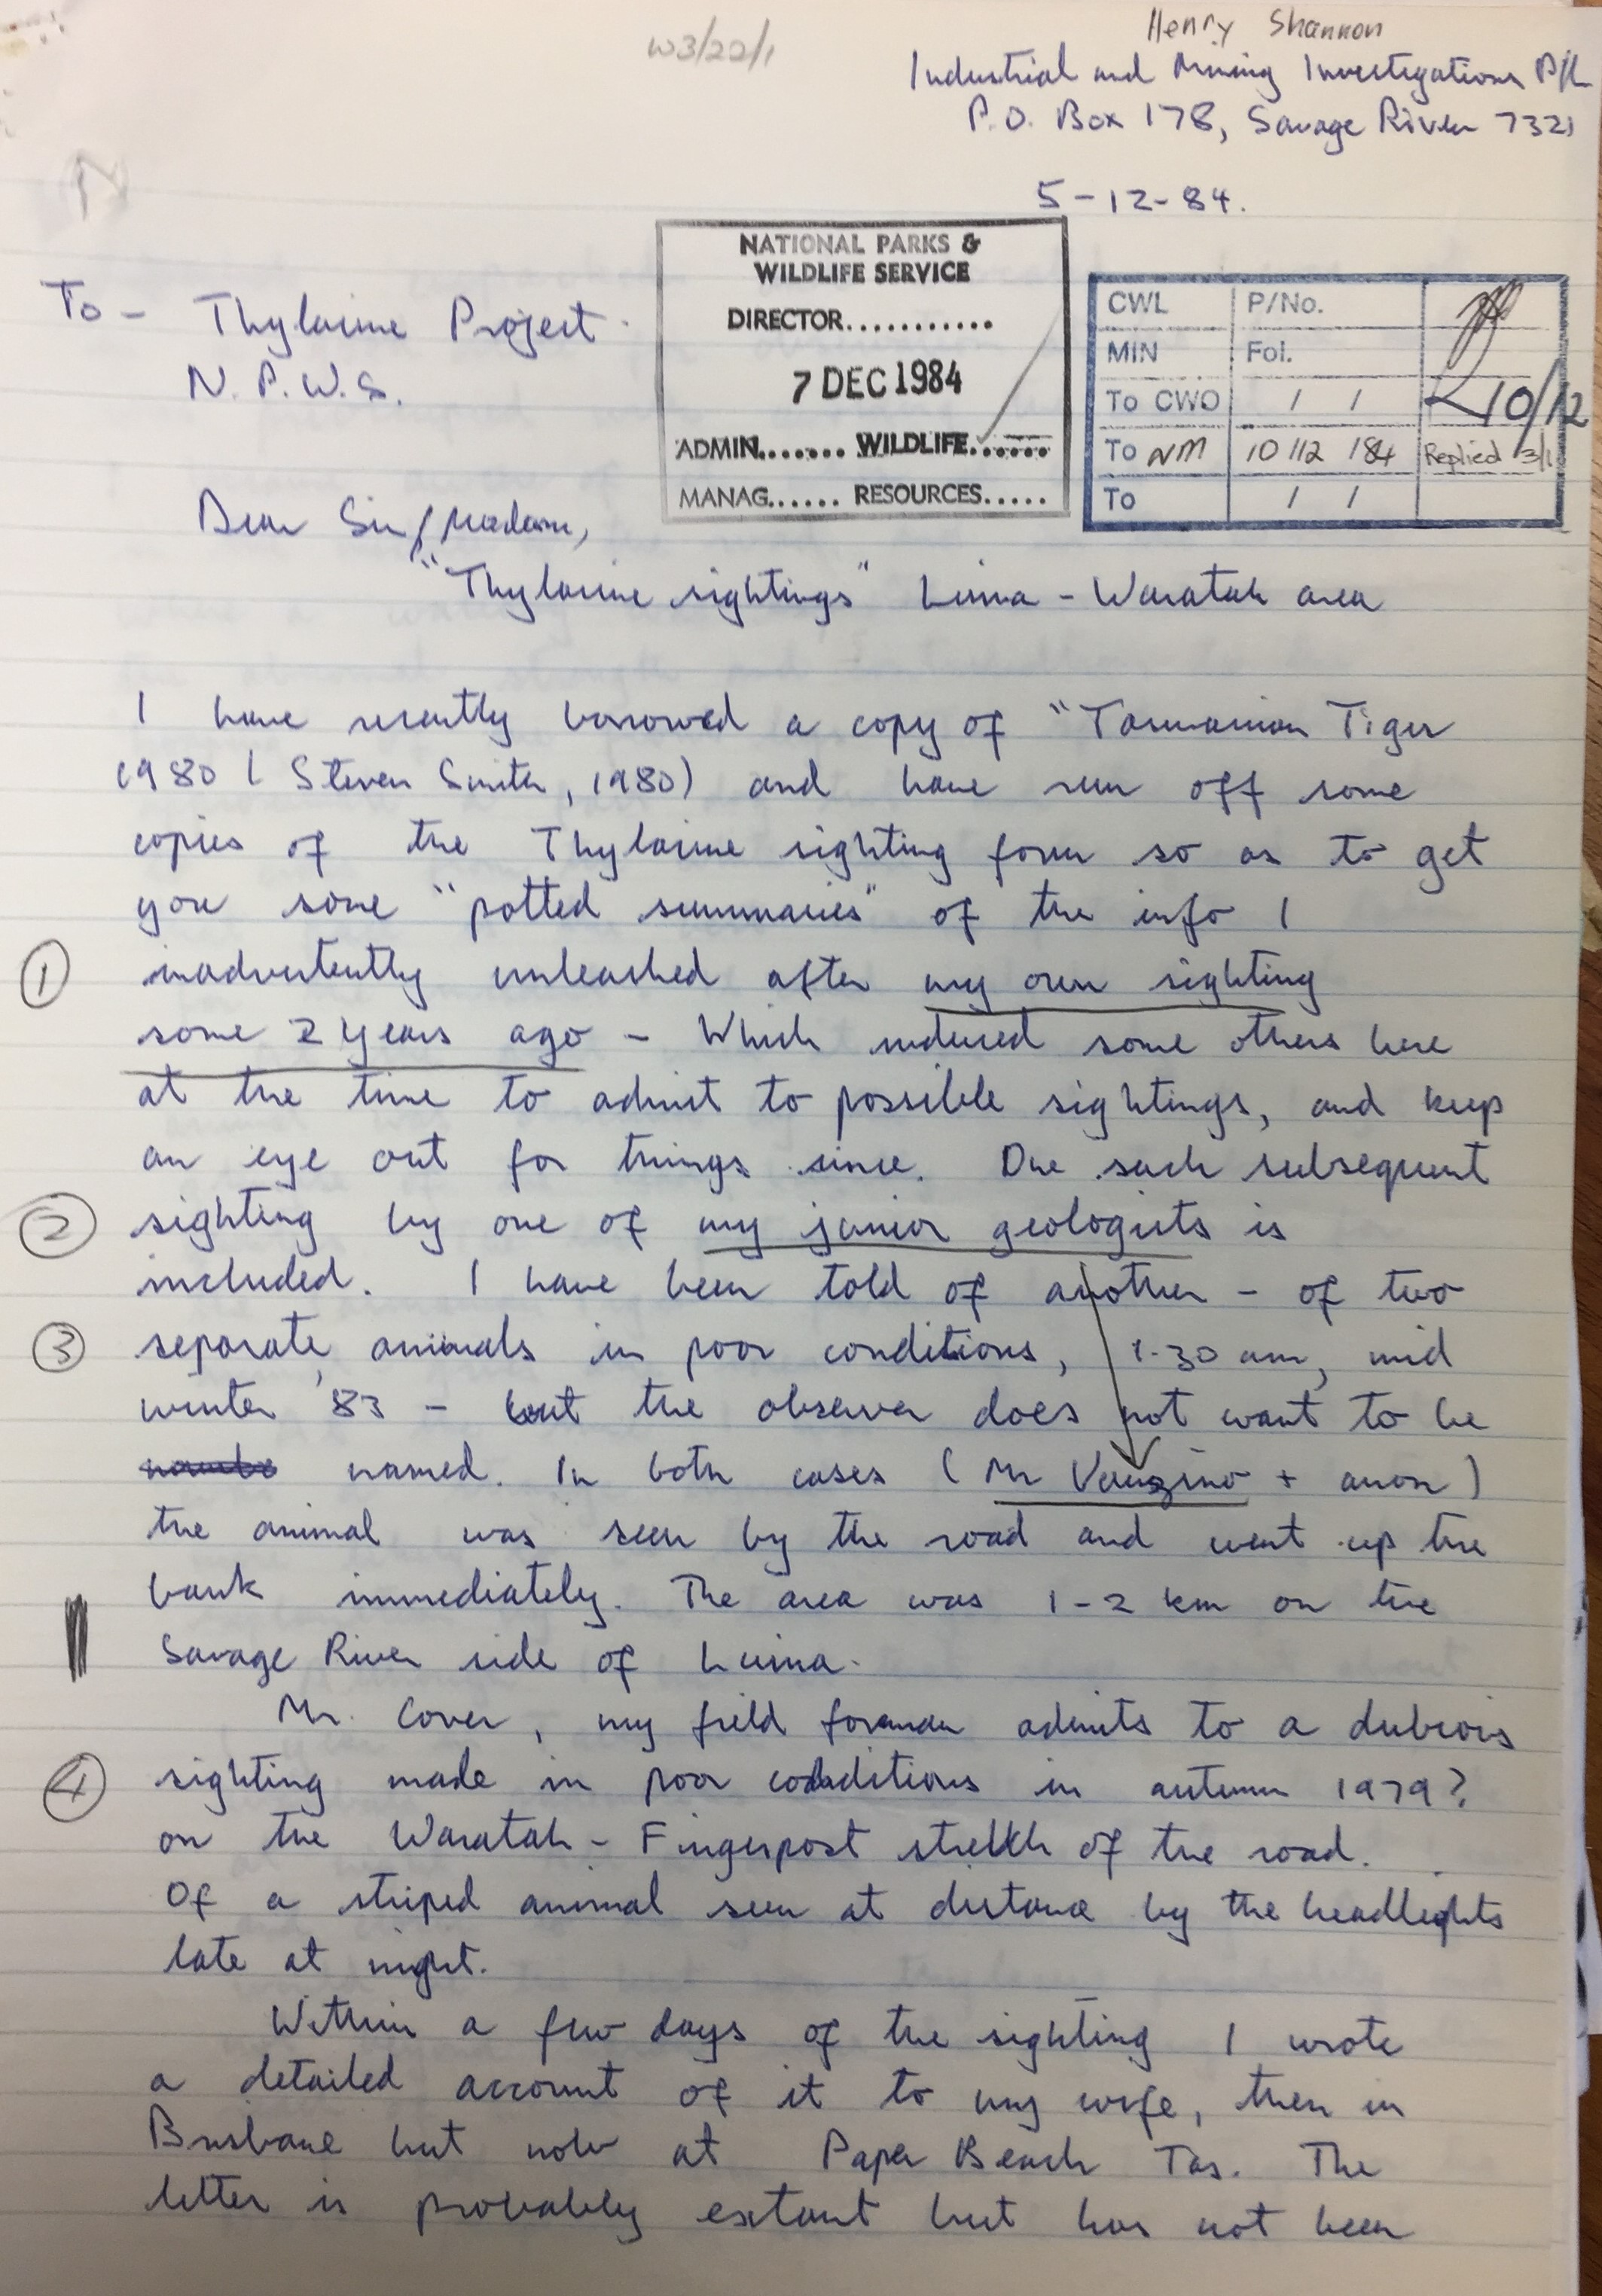 W3/22/1
Henry Shannon
Industrial and Mining Investigations P/L
P.O. Box 178, Savage River 7321
5-12-84.
NATIONAL PARKS &
WILDLIFE SERVICE
DIRECTOR...........
7 DEC 1984
ADMIN....... WILDLIFE.......
MANAG...... RESOURCES.....
CWL P/No.
MIN Fol.
To CWO / / 10/12
To NM 10/12/84 Replied 3/1
To / /
To - Thylacine Project.
N.P.W.S.
Dear Sir/Madam,
"Thylacine sightings" Luina - Waratah area
I have recently borrowed a copy of "Tasmanian Tiger
1980 (Steven Smith, 1980) and have run off some
copies of the Thylacine sighting form so as to get
you some "potted summaries" of the info I
① inadvertently unleashed after my own sighting
some 2 years ago - Which induced some others here
at the time to admit to possible sightings, and keep
an eye out for things since. One such subsequent
② sighting by one of my junior geologists is
included. I have been told of another - of two
③ separate animals in poor conditions, 1.30 am, mid
winter '83 - but the observer does not want to be
named. In both cases (Mr + anon)
the animal was seen by the road and went up the
bank immediately. The area was 1-2 km on the
Savage River side of Luina.
Mr. Cover, my field foreman admits to a dubious
④ sighting made in poor conditions in autumn 1979?
on the Waratah - Fingerpost stretch of the road.
Of a striped animal seen at distance by the headlights
late at night.
Within a few days of the sighting I wrote
a detailed account of it to my wife, then in
Brisbane but now at Paper Beach Tas. The
letter is probably extant but has not been